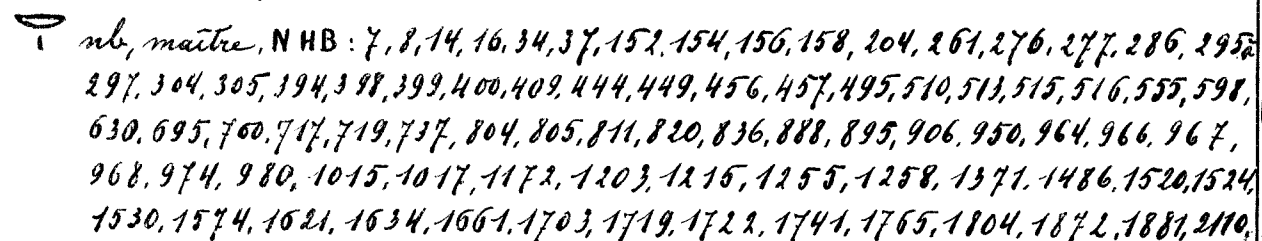 nb, maître, NHB : 7, 8, 14, 16, 34, 37, 152, 154, 156, 158, 204, 261, 276, 277, 286, 295 à
297, 304, 305, 394, 398, 399, 400, 409, 444, 449, 456, 457, 495, 510, 513, 515, 516, 555, 598,
630, 695, 700, 717, 719, 737, 804, 805, 811, 820, 836, 888, 895, 906, 950, 964, 966, 967,
968, 974, 980, 1015, 1017, 1172, 1203, 1215, 1255, 1258, 1371, 1486, 1520, 1524,
1530, 1574, 1621, 1634, 1661, 1703, 1719, 1722, 1741, 1765, 1804, 1872, 1881, 2110,